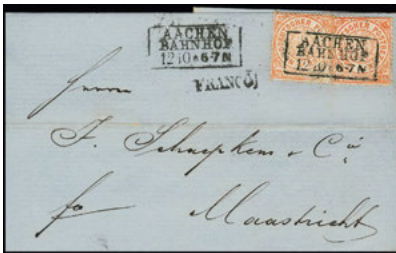 AACHEN
BAHNHOF
12 10 * 6-7 N
AACHEN
BAHNHOF
12 10 * 6-7 N
FRANCO
Herrn
J. Schaepkens & Co
Maastricht